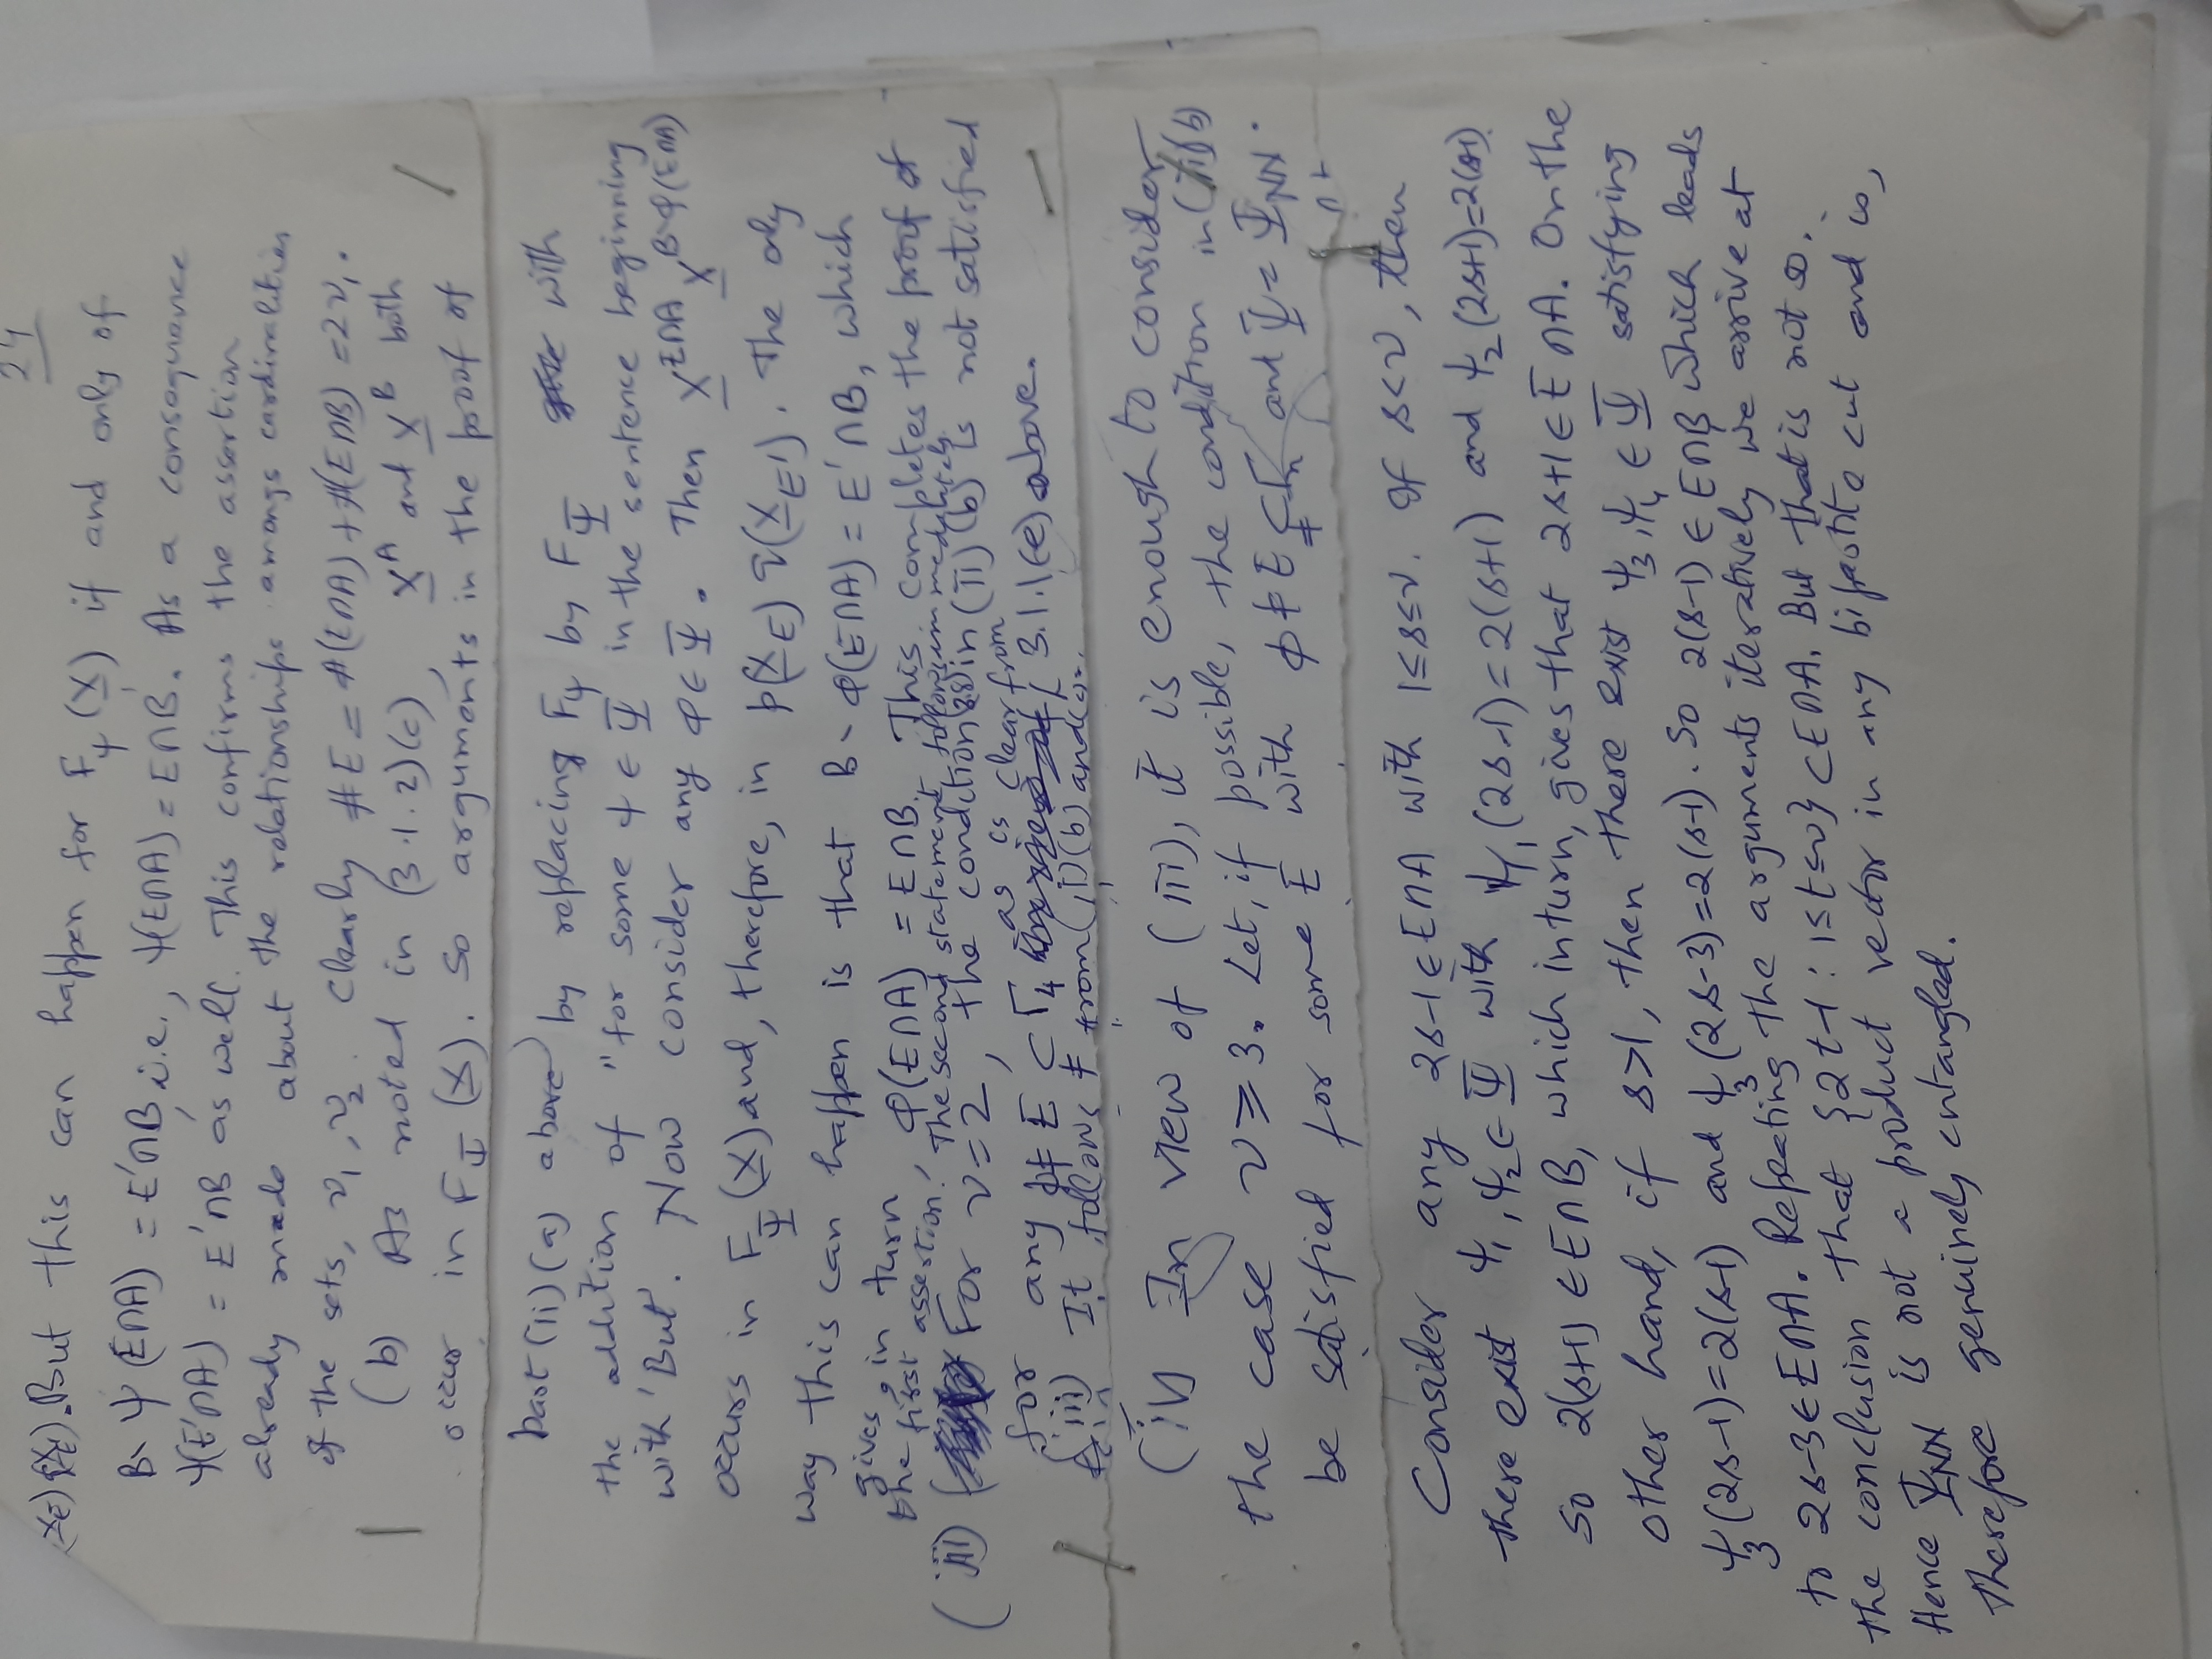 24
(X_E) q(X_E'). But this can happen for F_ψ(X) if and only of
B∖ψ(E∩A) = E'∩B, i.e., ψ(E∩A) = E∩B. As a consequence
ψ(E'∩A) = E'∩B as well. This confirms the assertion
already made about the relationships amongs cardinalities
of the sets, ν₁, ν₂. Clearly #E = #(E∩A) + #(E∩B) = 2ν₁.
(b) As noted in (3.1.2)(c), X^A and X^B both
occur in F_Ψ(X). So arguments in the proof of
part (ii)(a) above by replacing F_ψ by F_Ψ with
the addition of "for some ψ ∈ Ψ in the sentence beginning
with 'But'. Now consider any φ ∈ Ψ. Then X^{E∩A} X^{B∖φ(E∩A)}
occurs in F_Ψ(X) and, therefore, in p(X_E) q(X_E'). The only
way this can happen is that B∖φ(E∩A) = E'∩B, which
gives, in turn φ(E∩A) = E∩B. This completes the proof of
the first assertion. The second statement follows immediately.
(iii) For ν=2, the condition (3.8) in (ii)(b) is not satisfied
for any φ ≠ E ⊊ Γ₄ as is clear from 3.1.1(e) above.
(iii) It follows from (ii)(b) and
(iv) In view of (iii), it is enough to consider
the case ν ≥ 3. Let, if possible, the condition in (ii)(b)
be satisfied for some E with φ ≠ E ⊊ Γₙ and Ψ = Ψ_NN.
Consider any 2s-1 ∈ E∩A with 1≤s≤ν. If s<ν, then
there exist ψ₁, ψ₂ ∈ Ψ with ψ₁(2s-1) = 2(s+1) and ψ₂(2s+1) = 2(s+1).
So 2(s+1) ∈ E∩B, which in turn, gives that 2s+1 ∈ E∩A. On the
other hand, if s>1, then there exist ψ₃, ψ₄ ∈ Ψ satisfying
ψ₃(2s-1) = 2(s-1) and ψ₃(2s-3) = 2(s-1). So 2(s-1) ∈ E∩B which leads
to 2s-3 ∈ E∩A. Repeating the arguments iteratively we arrive at
the conclusion that {2t-1 : 1≤t≤ν} ⊂ E∩A. But that is not so.
Hence Ψ_NN is not a product vector in any bipartite cut and is,
therefore genuinely entangled.